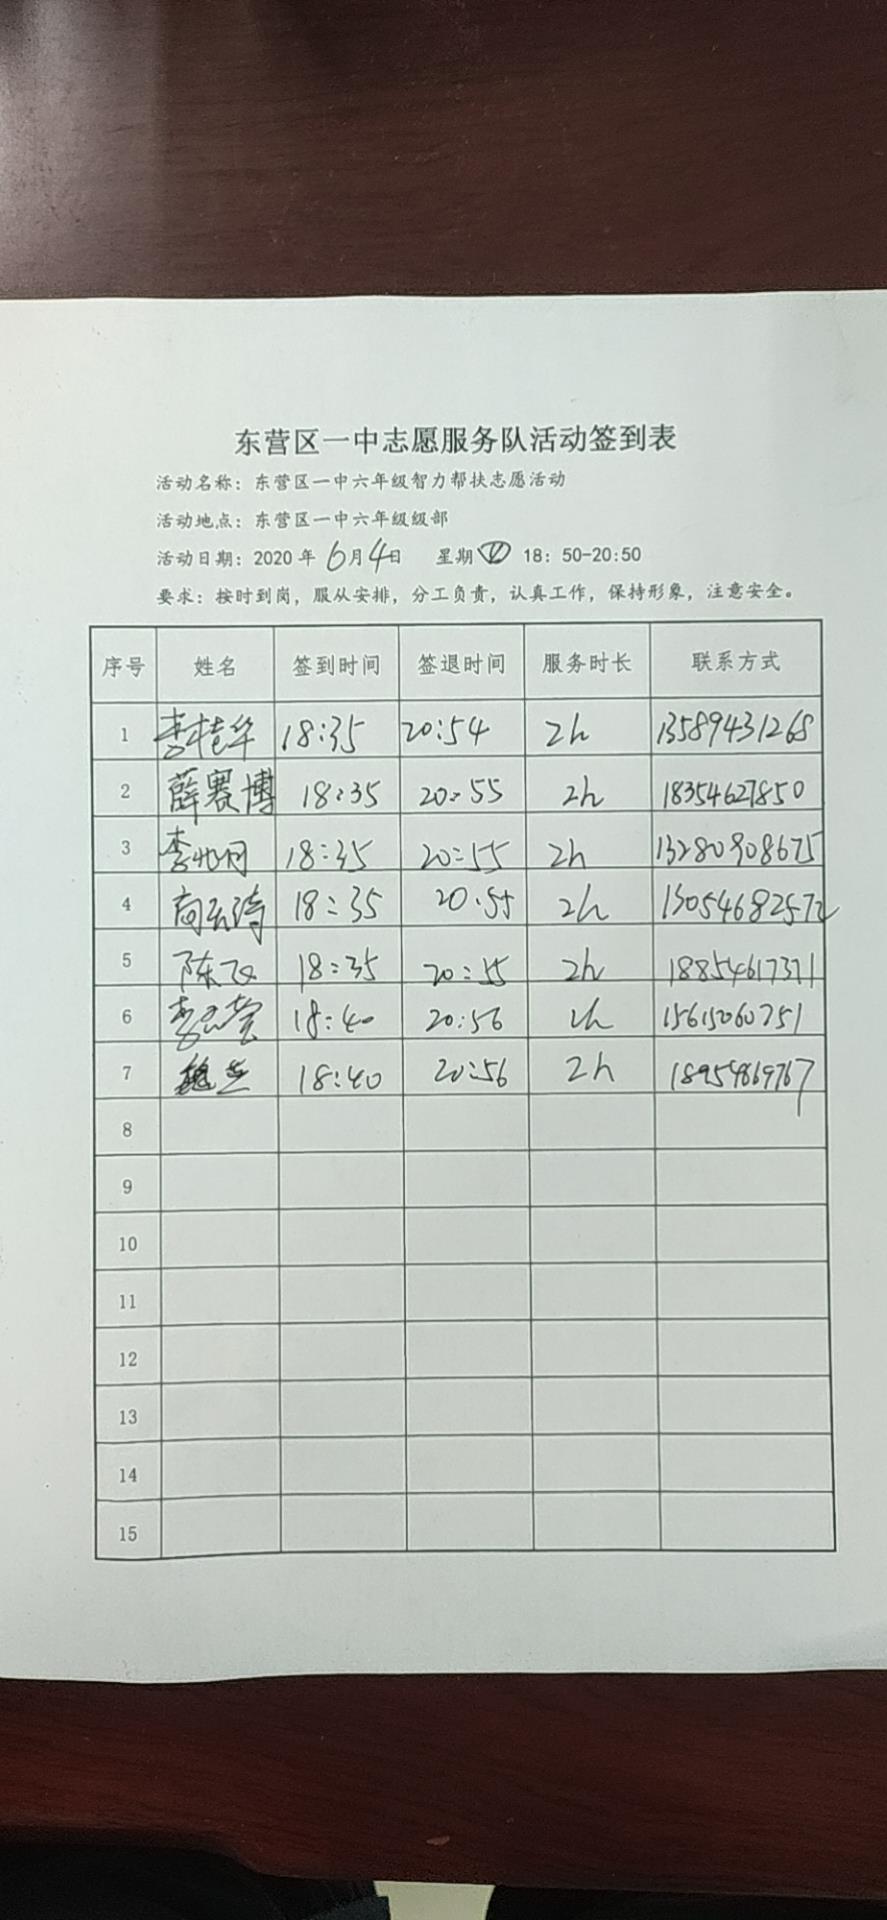 东营区一中志愿服务队活动签到表
活动名称：东营区一中六年级智力帮扶志愿活动
活动地点：东营区一中六年级级部
活动日期：2020年6月4日 星期四 18：50-20:50
要求：按时到岗，服从安排，分工负责，认真工作，保持形象，注意安全。
序号 姓名 签到时间 签退时间 服务时长 联系方式
1 李桂华 18:35 20:54 2h 13589431268
2 薛赛博 18:35 20:55 2h 18354627850
3 李 18:35 20:55 2h 13280908675
4 18:35 20:55 2h 13054682572
5 陈飞 18:35 20:55 2h 18854617371
6 李 18:40 20:56 2h 15615060751
7 魏 18:40 20:56 2h 18954869767
8
9
10
11
12
13
14
15